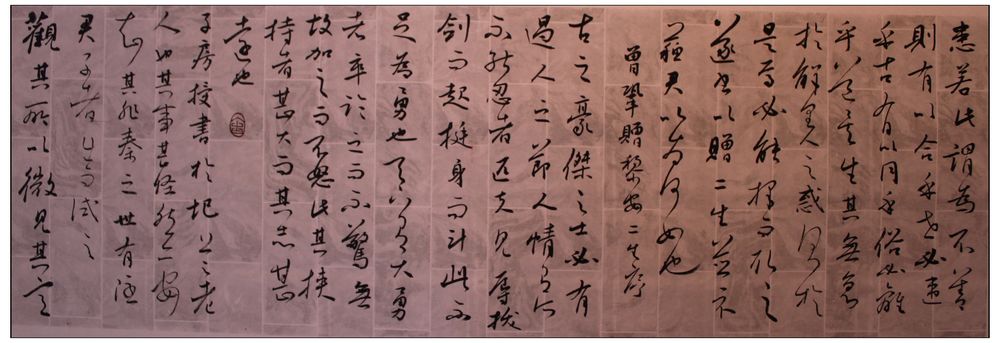 患若此謂為不善
則有以合乎世必違
乎古有以同乎俗必離
乎道矣生其無急
於解里人之惑則於
是焉必能擇而取之
遂書以贈二生並示
蘇君以為何如也
曾鞏贈黎安二生序
古之豪傑之士必有
過人之節人情有所
不能忍者匹夫見辱拔
劍而起挺身而鬥此不
足為勇也天下有大勇
者卒臨之而不驚無
故加之而不怒此其挾
持者甚大而其志甚
遠也
子房授書於圯上之老
人也其事甚怪然亦安
知其非秦之世有隱
君子者出而試之
觀其所以微見其意